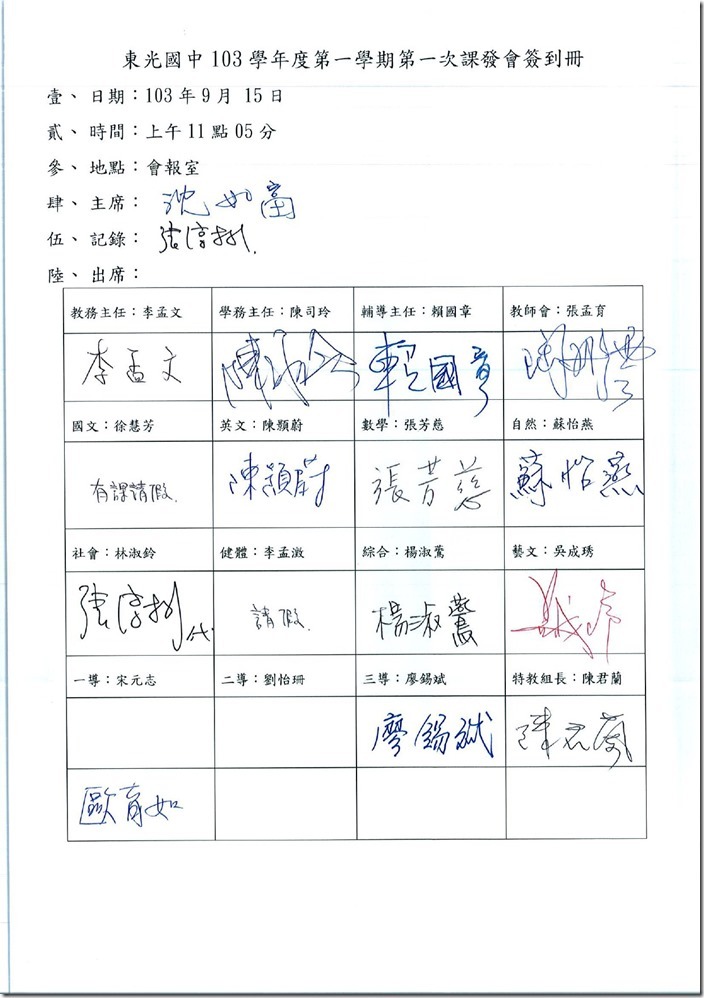 東光國中 103 學年度第一學期第一次課發會簽到冊
壹、 日期：103 年 9 月 15 日
貳、 時間：上午 11 點 05 分
參、 地點：會報室
肆、 主席： 沈如富
伍、 記錄：
陸、 出席：
教務主任：李孟文 學務主任：陳司玲 輔導主任：賴國章 教師會：張孟育
李孟文 賴國章
國文：徐慧芳 英文：陳顥蔚 數學：張芳慈 自然：蘇怡燕
有課請假. 陳顥蔚 張芳慈 蘇怡燕
社會：林淑鈴 健體：李孟澂 綜合：楊淑鶯 藝文：吳成琇
代 請假. 楊淑鶯
一導：宋元志 二導：劉怡珊 三導：廖錫斌 特教組長：陳君蘭
廖錫斌 陳君蘭
歐育如